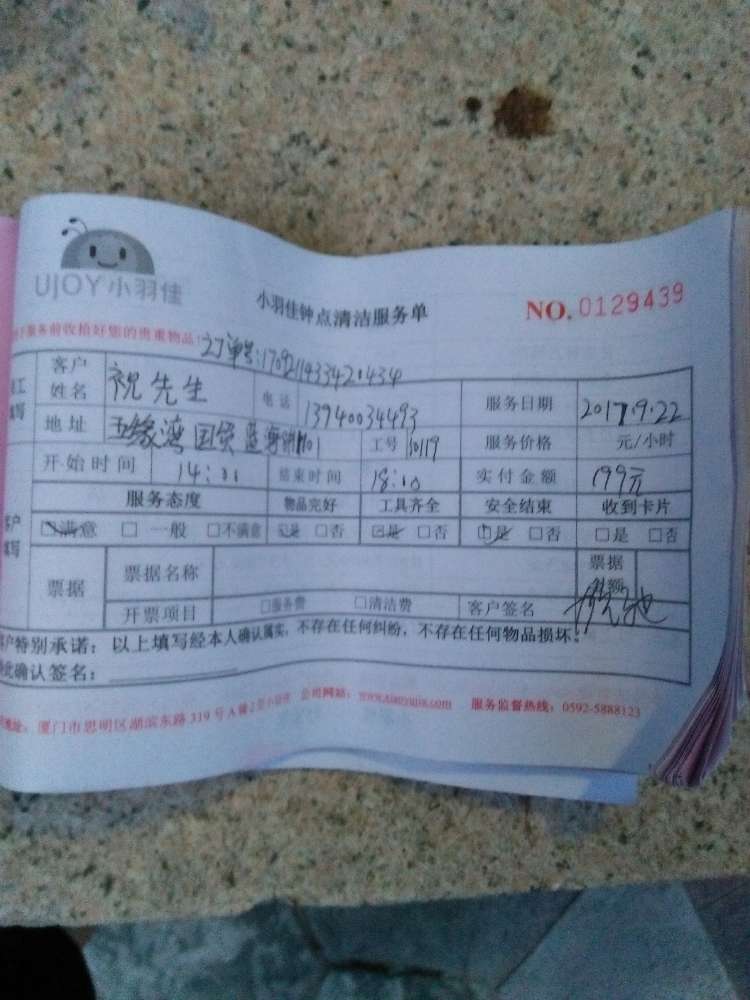 UJOY小羽佳
小羽佳钟点清洁服务单
NO. 0129439
服务前收拾好您的贵重物品!
订单号:1709211433420434
客户姓名 祝先生 电话 13940034493 服务日期 2017.9.22
地址 五缘湾国贸蓝海 工号 服务价格 元/小时
开始时间 14:01 结束时间 18:10 实付金额 199元
服务态度 物品完好 工具齐全 安全结束 收到卡片
客户填写 ☑满意 □一般 □不满意 ☑是 □否 ☑是 □否 ☑是 □否 □是 □否
票据 票据名称 票据金额
开票项目 □服务费 □清洁费 客户签名
客户特别承诺:以上填写经本人确认属实,不存在任何纠纷,不存在任何物品损坏。
此确认签名:
地址:厦门市思明区湖滨东路319号A幢2层小羽佳 公司网站: 服务监督热线:0592-5888123